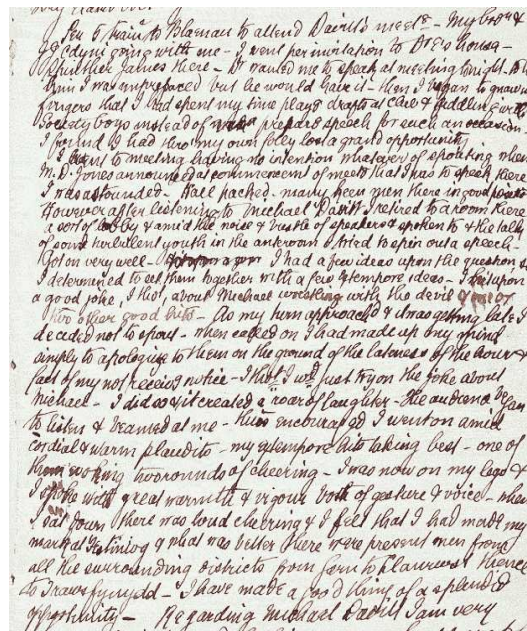 Per 6 train to Blaenau to attend Davitt's meetg - My broṛ &
going with me - I went per invitation to Dr E's house -
Michael James there - Dr wanted me to speak at meeting tonight - told
him I was unprepared but he would have it - then I began to gnaw my
fingers that I had spent my time playg drafts at Cave & fiddling with
Society boys instead of prepare speech for such an occasion
I found I had thro' my own folly lost a grand opportunity
I went to meeting having no intention whatever of spouting when
M.D. Jones announced at commencemt of meetg that I was to speak there
I was astounded. Hall packed - many keen men there in good
However after listening to Michael Davitt I retired to a room there
a sort of lobby & amid the noise & bustle of speakers & spoken to & the talk
of some turbulent youth in the anteroom I tried to spin out a speech -
Got on very well - I had a few ideas upon the question &
I determined to set them together with a few extempore ideas - I hit upon
a good joke, I thot, about Michael wrestling with the devil & one or
two other good hits - As my turn approachd & it was getting late I
decided not to spout - when called on I had made up my mind
simply to apologise to them on the ground of the lateness of the hour &
fact of my not receivg notice - I thot I wd just try on the joke about
Michael - I did so & it created a roar of laughter - the audience began
to listen & beamed at me - thus encouraged I went on amid
cordial & warm plaudits - my extempore hits taking best - one of
them evoking two rounds of cheering - I was now on my legs &
I spoke with great warmth & vigour both of gesture & voice - when
I sat down there was loud cheering & I felt that I had made my
mark at Ffestiniog & what was better there were present men from
all the surrounding districts from
to Trawsfynydd - I have made a good thing of a splendid
opportunity - Regarding Michael Davitt I am very